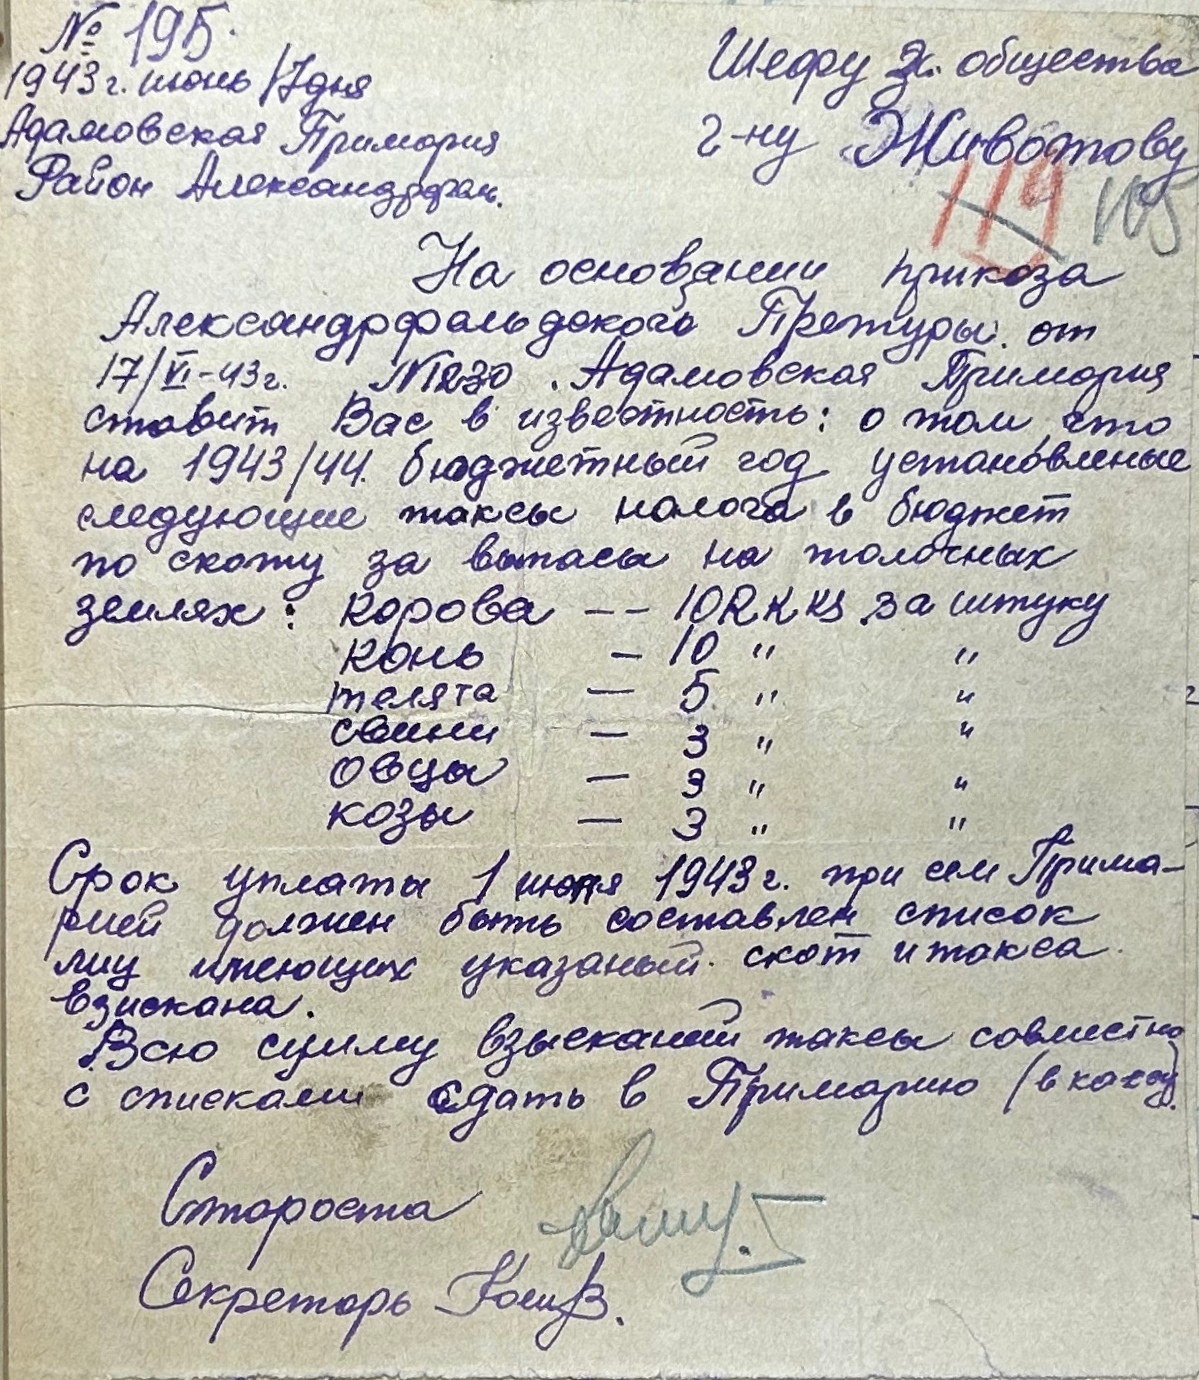 № 195.
1943 г. июнь 17 дня
Адамовская Примория
Район Александрфель.
Шефу Эк. общества
г-ну Животову
119 105
На основании прикоза
Александрфальдского Претуры. от
17/VI-43г. №1230. Адамовская Примория
ставит Вас в известность: о том, что
на 1943/44. бюджетный год установленые
следующие таксы налога в бюджет
по скоту за выпасы на толочных
землях: Корова -- 10 RKKS за штуку
Конь — 10 " "
телята — 5 " "
свини — 3 " "
овцы — 3 " "
козы — 3 " "
Срок уплаты 1 июля 1943г. при сем Прима-
рией должен быть составлен список
лиц имеющих указаный скот и такса
взискана.
Всю сумму взысканий таксы совместно
с списками сдать в Примарию (в кассу).
Староста
Секретарь